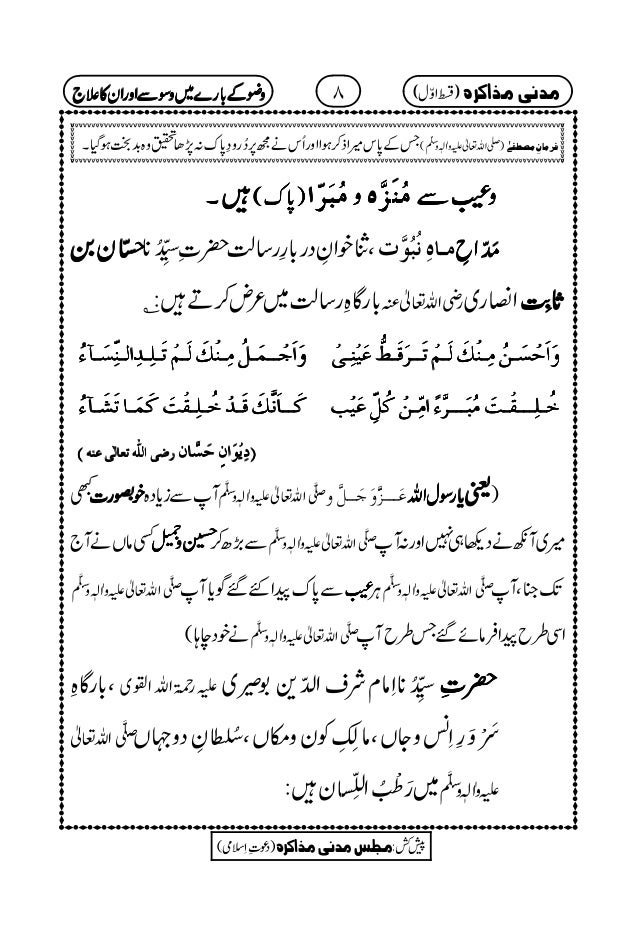 مدنی مذاکرہ (قسط اوّل) ۸ وضو کے بارے میں وسوسے اور ان کا علاج
فرمانِ مصطفےٰ (صلی اللہ تعالیٰ علیہ والہٖ وسلّم) جس کے پاس میرا ذکر ہوا اور اُس نے مجھ پر دُرودِ پاک نہ پڑھا تحقیق وہ بد بخت ہو گیا۔
وعیب سے مُنَزَّہ و مُبَرَّا (پاک) ہیں۔
مَدّاحِ ماہِ نُبُوَّت، ثنا خوانِ دربارِ رسالت حضرتِ سیِّدُ نا حسّان بن
ثابِت انصاری رضی اللہ تعالیٰ عنہ بارگاہِ رسالت میں عرض کرتے ہیں:
وَاَحْسَنُ مِنْكَ لَمْ تَرَقَطُّ عَيْنِىْ وَاَجْمَلُ مِنْكَ لَمْ تَلِدِ النِّسَآءُ
خُلِقْتَ مُبَرَّءً امِّنْ كُلِّ عَيْبٍ كَاَنَّكَ قَدْ خُلِقْتَ كَمَا تَشَآءُ
(دِیْوَانِ حَسَّان رضی اللہ تعالٰی عنہ)
(یعنی یا رسول اللہ عَزَّوَجَلَّ و صلَّی اللہ تعالیٰ علیہ والہٖ وسلَّم آپ سے زیادہ خوبصورت کبھی
میری آنکھ نے دیکھا ہی نہیں اور نہ آپ صلَّی اللہ تعالیٰ علیہ والہٖ وسلَّم سے بڑھ کر حسین و جمیل کسی ماں نے آج
تک جنا، آپ صلَّی اللہ تعالیٰ علیہ والہٖ وسلَّم ہر عیب سے پاک پیدا کئے گئے گویا آپ صلَّی اللہ تعالیٰ علیہ والہٖ وسلَّم
اسی طرح پیدا فرمائے گئے جس طرح آپ صلَّی اللہ تعالیٰ علیہ والہٖ وسلَّم نے خود چاہا)
حضرتِ سیِّدُ نا اِمام شرف الدّین بوصیری علیہ رحمۃ اللہ القوی، بارگاہِ
سَرْوَرِ اِنس وجاں، مالِکِ کون ومکاں، سُلطانِ دو جہاں صلَّی اللہ تعالیٰ
علیہ والہٖ وسلَّم میں رَطْبُ اللِّسان ہیں:
پیش کش: مجلس مدنی مذاکرہ (دعوتِ اسلامی)